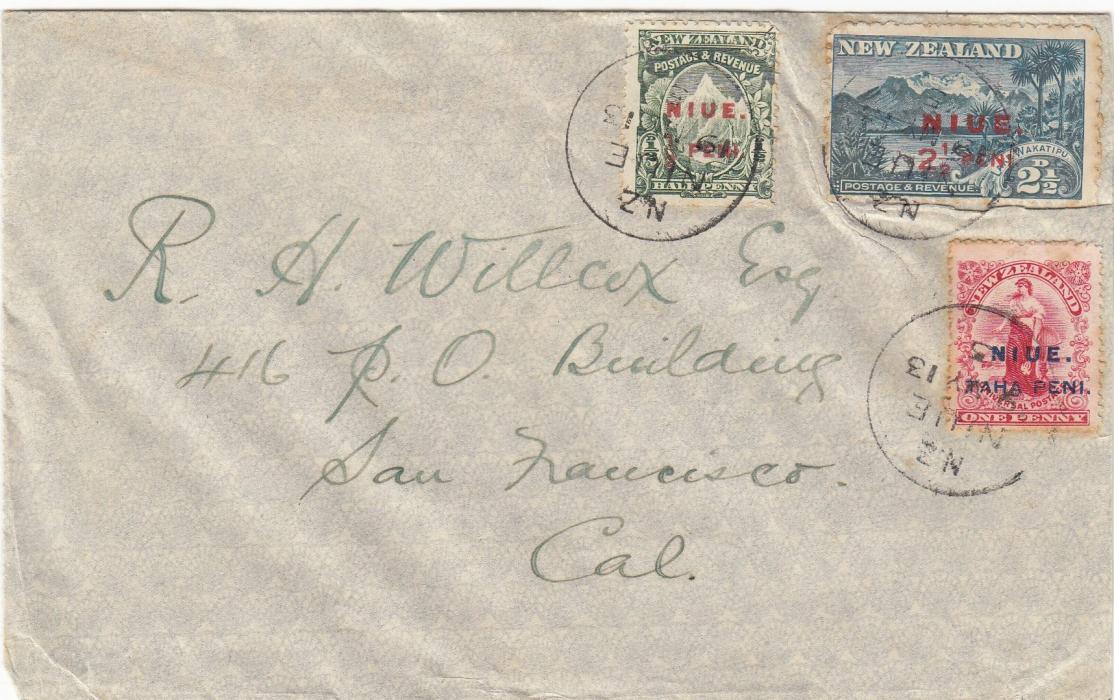 NEW ZEALAND
POSTAGE & REVENUE
NIUE.
½ PENI
HALF PENNY
NEW ZEALAND
NIUE.
2½ PENI
WAKATIPU
POSTAGE & REVENUE
2½D
NEW ZEALAND
NIUE.
TAHA PENI.
UNIVERSAL POSTAGE
ONE PENNY
N.Z
N.Z
N.Z
NIUE
13
R. H. Willcox Esq
416 P. O. Building
San Francisco.
Cal.